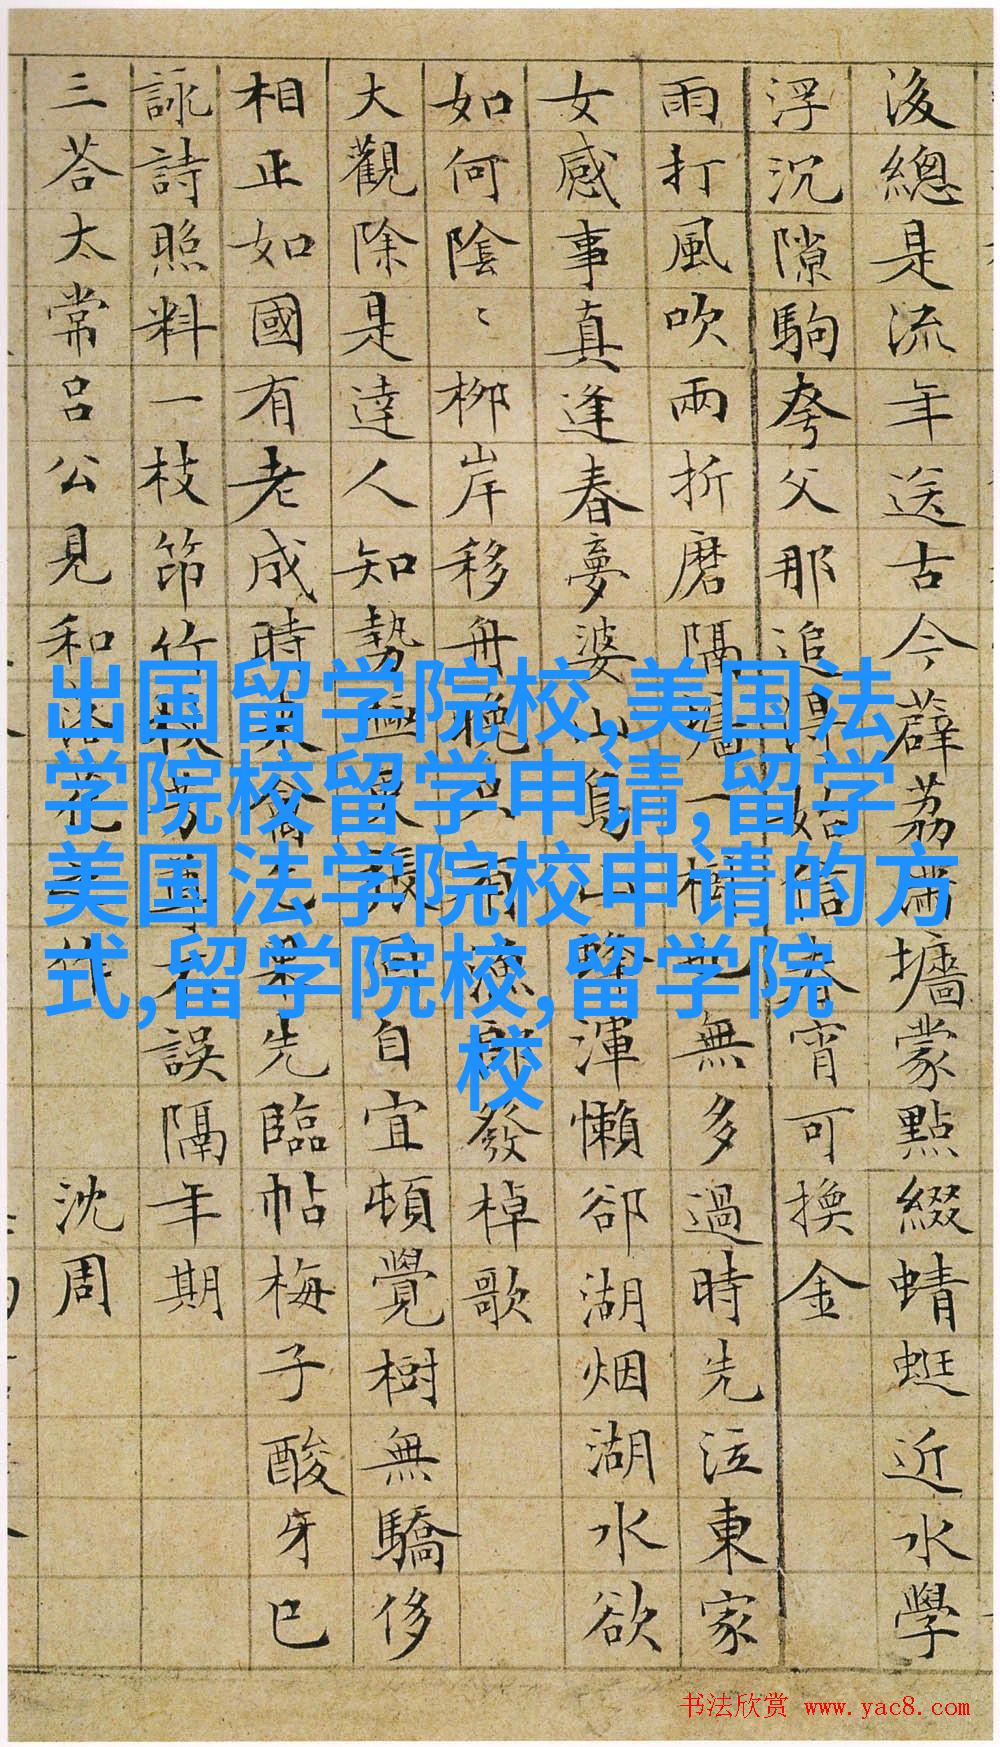 後總是流年送古今薜荔滿墻蒙點綴蜻蜓近水學
浮沉隙駒夸父那追得始信春宵可換金
雨打風吹兩折磨隔墻一樹也無多過時先泣東家
女感事真逢春夢婆山鳥山蜂渾懶卻湖烟湖水欲
如何陰〻柳岸移舟晚只有漁郎發棹歌
大觀除是達人知勢極張自宜頓覺樹無驕侈
相正如國有老成時東先臨帖梅子酸牙已
詠詩照料一枝筇竹杖芳尊誤隔年期
三荅太常呂公見和落花之作 沈周
出国留学院校,美国法
学院校留学申请,留学
美国法学院校申请的方
式,留学院校,留学院
校
书法欣赏 www.yac8.com